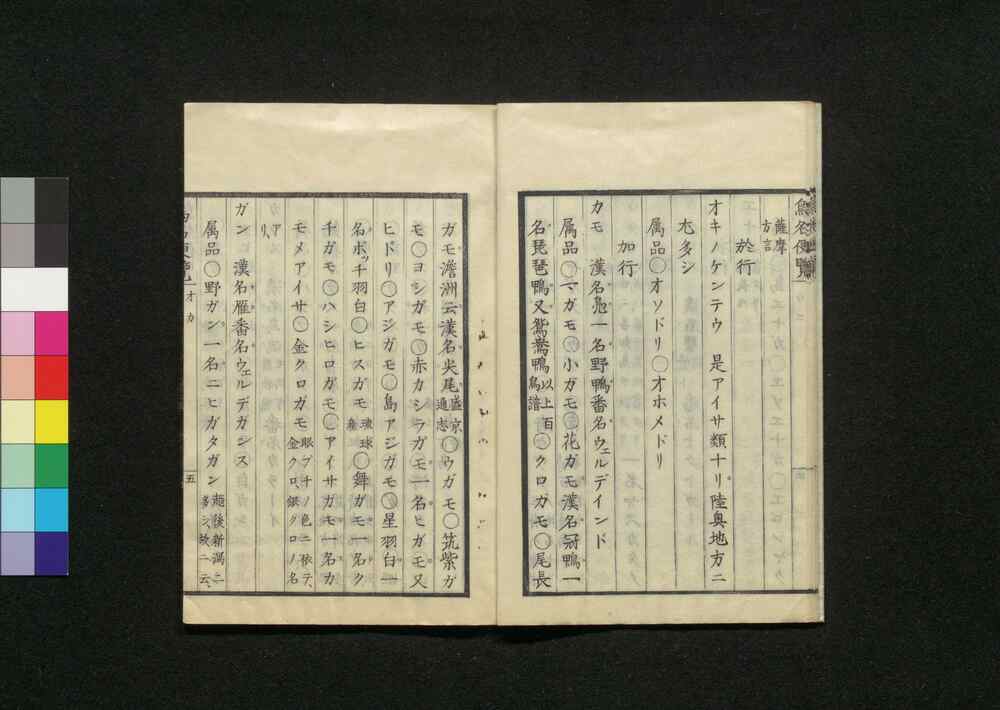 薩摩
方言
於行
オキノケンテウ 是アイサ類ナリ陸奥地方ニ
尤多シ
属品〇オソドリ〇オホメドリ
加行
カモ 漢名鳧一名野鴨番名ウェルデインド
属品〇マガモ〇小ガモ〇花ガモ漢名冠鴨一
名琵琶鴨又鴛鴦鴨以上百鳥譜〇クロガモ〇尾長
ガモ澹洲云漢名尖尾盛京通志〇ウガモ〇筑紫ガ
モ〇ヨシガモ〇赤カシラガモ一名ヒガモ又
ヒドリ〇アジガモ〇島アジガモ〇星羽白一
名ボッチ羽白〇ヒスガモ琉球〇舞ガモ一名ク
チガモ〇ハシヒロガモ〇アイサガモ一名カ
モメアイサ〇金クロガモ眼ブチノ色ニ依テ、金クロ、銀クロノ名
アリ、
ガン 漢名雁番名ウェルデガンス
属品〇野ガン一名ニヒガタガン越後新潟ニ多シ、故ニ云、
オカ
五